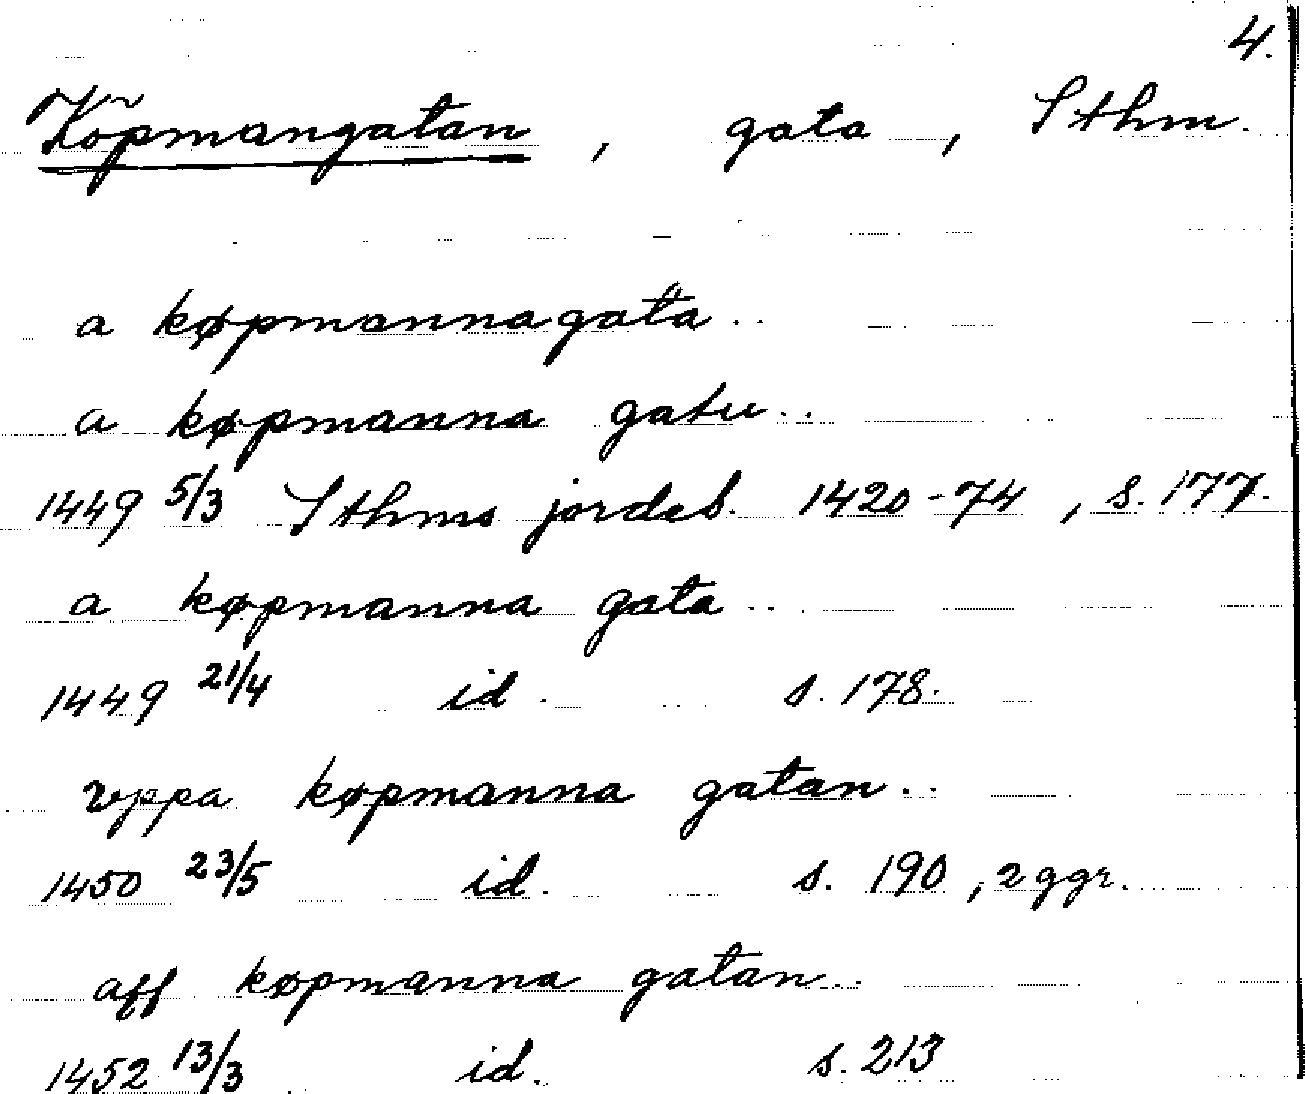 4.
Köpmangatan, gata, Sthm.
a køpmannagata..
a køpmanna gatu..
1449 5/3 Sthms jordeb. 1420-74, s. 177.
a køpmanna gata..
1449 21/4 id. s. 178.
vppa køpmanna gatan..
1450 23/5 id. s. 190, 2 ggr.
aff køpmanna gatan..
1452 13/3 id. s. 213